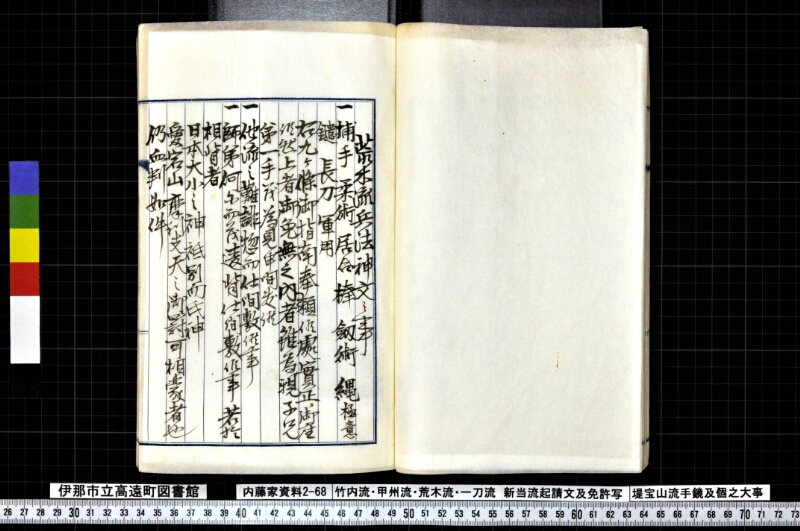 荒木流兵法神文之事
一 捕手 柔術 居合 棒 劔術 縄極意
鑓 長刀 軍用
右九ヶ條御指南奉頼候處實正御座
候然上者御免無之内者雖為親子兄
第一手
一 他流之難誹惣而仕間敷候事
一 師第何ニ而茂違背仕間敷候事 若於
相背者
日本大小之神祇別而氏神
愛宕山摩利支天之御罸可相蒙者也
仍血判如件
伊那市立高遠町図書館
内藤家資料2-68
竹内流・甲州流・荒木流・一刀流 新当流起請文及免許写
堤宝山流手鏡及個之大事
26 27 28 29 30 31 32 33 34 35 36 37 38 39 40 41 42 43 44 45 46 47 48 49 50 51 52 53 54 55 56 57 58 59 60 61 62 63 64 65 66 67 68 69 70 71 72 73